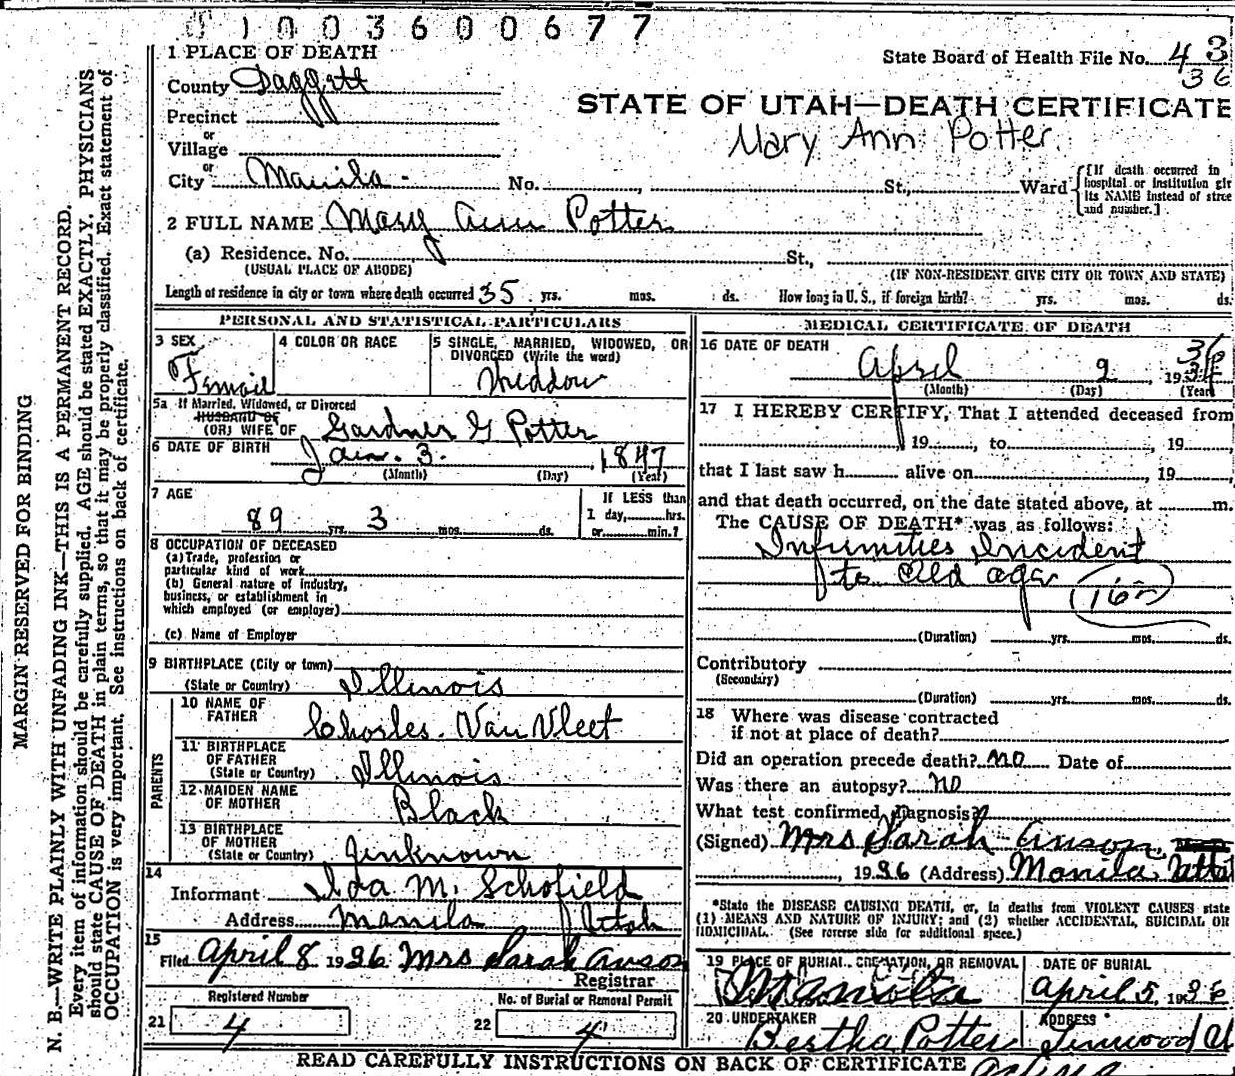 0100360067 7
1 PLACE OF DEATH
State Board of Health File No. 43
36
County Daggett
STATE OF UTAH—DEATH CERTIFICATE
Precinct
Mary Ann Potter.
or
Village
or
City Manila. No. , St., Ward
{[If death occurred in
hospital or institution giv
its NAME instead of stree
and number.]
2 FULL NAME Mary Ann Potter
(a) Residence. No. St.,
(USUAL PLACE OF ABODE) (IF NON-RESIDENT GIVE CITY OR TOWN AND STATE)
Length of residence in city or town where death occurred 35 yrs. mos. ds. How long in U. S., if foreign birth? yrs. mos. ds.
PERSONAL AND STATISTICAL PARTICULARS
3 SEX
Female
4 COLOR OR RACE
5 SINGLE, MARRIED, WIDOWED, OR
DIVORCED (Write the word)
Widdow
5a If Married, Widowed, or Divorced
HUSBAND OF
(OR) WIFE OF Gardner G Potter
6 DATE OF BIRTH
Jan. 3. , 1847
(Month) (Day) (Year)
7 AGE
89 yrs. 3 mos. ds.
If LESS than
1 day, hrs.
or min.?
8 OCCUPATION OF DECEASED
(a) Trade, profession or
particular kind of work
(b) General nature of industry,
business, or establishment in
which employed (or employer)
(c) Name of Employer
9 BIRTHPLACE (City or town)
(State or Country) Illinois
PARENTS
10 NAME OF
FATHER Charles. Van Vleet
11 BIRTHPLACE
OF FATHER
(State or Country) Illinois
12 MAIDEN NAME
OF MOTHER Black
13 BIRTHPLACE
OF MOTHER
(State or Country) Unknown
14
Informant Ida M. Schofield
Address Manila Utah
15
Filed April 8 1936 Mrs Sarah Anson
Registrar
Registered Number
21 4
No. of Burial or Removal Permit
22 4
MEDICAL CERTIFICATE OF DEATH
16 DATE OF DEATH
April 2 , 193
36
(Month) (Day) (Year)
17 I HEREBY CERTIFY, That I attended deceased from
, 19 , to , 19
that I last saw h alive on , 19
and that death occurred, on the date stated above, at m.
The CAUSE OF DEATH* was as follows:
Infirmities Incident
to Old age
162
(Duration) yrs. mos. ds.
Contributory
(Secondary)
(Duration) yrs. mos. ds.
18 Where was disease contracted
if not at place of death?
Did an operation precede death? no Date of
Was there an autopsy? no
What test confirmed diagnosis?
(Signed) Mrs Sarah Anson,
, 1936 (Address) Manila Utah
*State the DISEASE CAUSING DEATH, or, in deaths from VIOLENT CAUSES state
(1) MEANS AND NATURE OF INJURY; and (2) whether ACCIDENTAL, SUICIDAL OR
HOMICIDAL. (See reverse side for additional space.)
19 PLACE OF BURIAL, CREMATION, OR REMOVAL
Manila
DATE OF BURIAL
April 5, 1936
20 UNDERTAKER
Bertha Potter
ADDRESS
Linwood Ut
READ CAREFULLY INSTRUCTIONS ON BACK OF CERTIFICATE
MARGIN RESERVED FOR BINDING
N. B.—WRITE PLAINLY WITH UNFADING INK—THIS IS A PERMANENT RECORD.
Every item of information should be carefully supplied. AGE should be stated EXACTLY. PHYSICIANS
should state CAUSE OF DEATH in plain terms, so that it may be properly classified. Exact statement of
OCCUPATION is very important. See instructions on back of certificate.